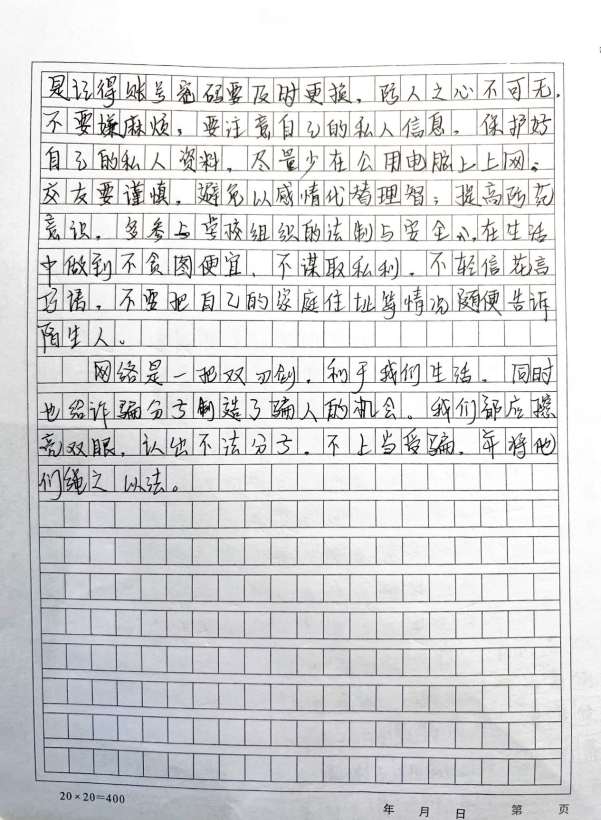 是记得账号密码要及时更换，防人之心不可无，
不要嫌麻烦，要注意自己的私人信息，保护好
自己的私人资料，尽量少在公用电脑上上网；
交友要谨慎，避免以感情代替理智；提高防范
意识，多参与学校组织的法制与安全，在生活
中做到不贪图便宜、不谋取私利，不轻信花言
巧语，不要把自己的家庭住址等情况随便告诉
陌生人。
网络是一把双刃剑，利于我们生活，同时
也给诈骗分子制造了骗人的机会。我们都应擦
亮双眼，认出不法分子，不上当受骗，将他
们绳之以法。
20×20=400
年 月 日 第 页